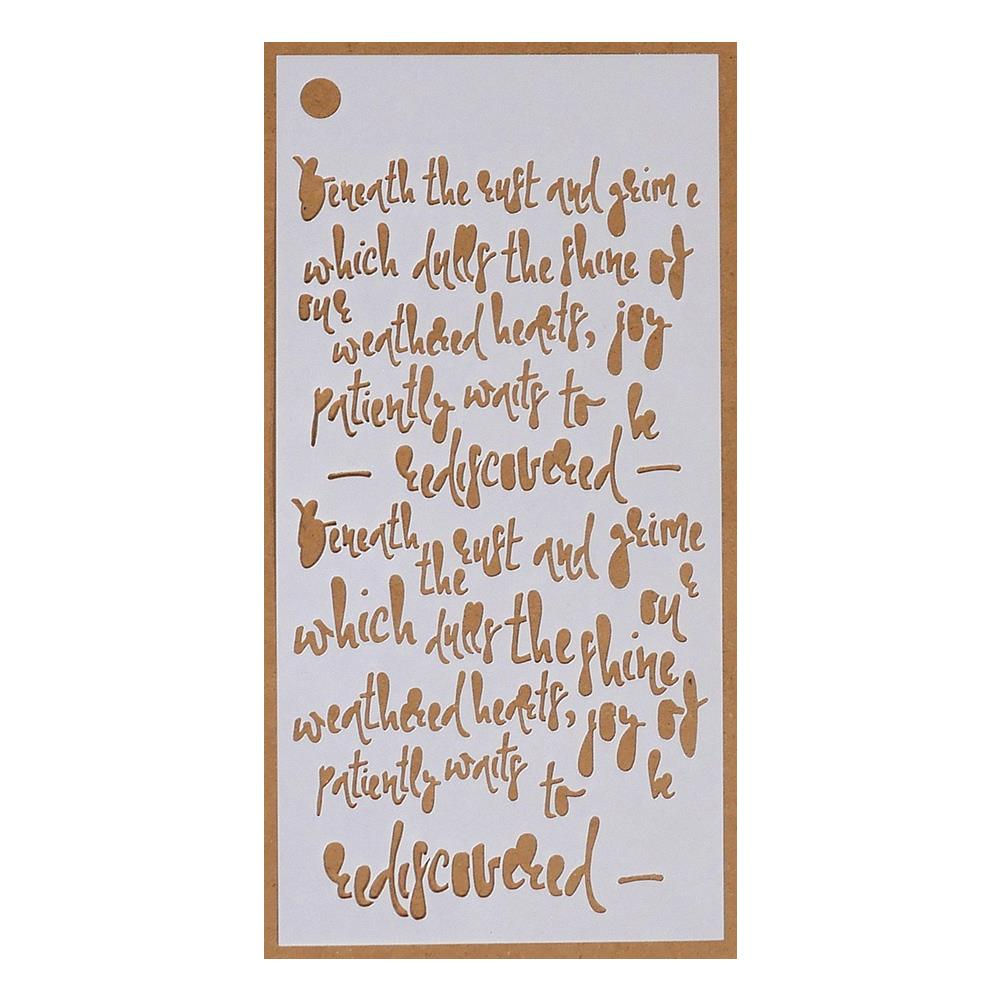 Beneath the rust and grime
which dulls the shine of
our
weathered hearts, joy
patiently waits to be
— rediscovered —
Beneath the rust and grime
which dulls the shine our
weathered hearts, joy of
patiently waits to be
rediscovered —